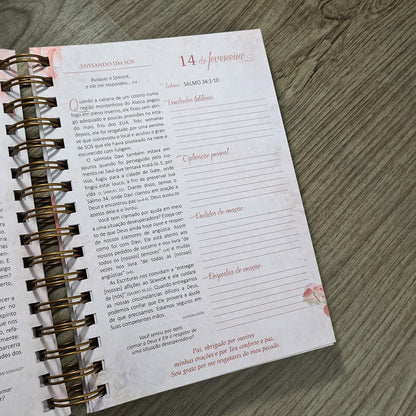 ENVIANDO UM SOS
14 de fevereiro
Busquei o SENHOR,
e ele me respondeu...
Salmo: SALMO 34:1-10
Quando a cabana de um colono numa
região montanhosa do Alasca pegou
fogo em pleno inverno, ele ficou sem abri-
go adequado e poucas provisões no esta-
do mais frio dos EUA. Três semanas
depois, ele foi resgatado por uma aerona-
ve que sobrevoou o local e avistou o gran-
de SOS que ele havia pisoteado na neve e
escurecido com fuligem.
O salmista Davi também estava em
apuros quando foi perseguido pelo ciu-
mento rei Saul que tentava matá-lo. E, por
isso, fugiu para a cidade de Gate, onde
fingiu estar louco, a fim de preservar sua
vida
Diante disso, temos o
Salmo 34, onde Davi clamou em oração a
Deus e encontrou paz
Deus ouviu os
apelos dele e o livrou.
Você tem clamado por ajuda em meio
a uma situação desesperadora? Esteja cer-
to de que Deus ainda hoje ouve e respon-
de aos nossos clamores de angústia. Assim
como foi com Davi, Ele está atento aos
nossos pedidos de socorro e nos livra "de
todos os [nossos] temores"
e muitas
vezes nos livra "de todas as [nossas]
angústias"
As Escrituras nos convidam a "entregar
[nossas] aflições ao SENHOR e ele cuidará
de [nós]"
Quando entregamos
as nossas circunstâncias difíceis a Deus,
podemos confiar que Ele proverá a ajuda
de que precisamos. Estamos seguros em
Suas competentes mãos.
ALYSON KIEDA
Você sentiu paz após
clamar a Deus e Ele o resgatar de
uma situação desesperadora?
Verdades bíblicas:
Aplicação pessoal:
Pedidos de oração:
Respostas de oração:
Pai, obrigado por ouvires
minhas orações e por Teu conforto e paz.
Sou grato por me resgatares do meu pecado.